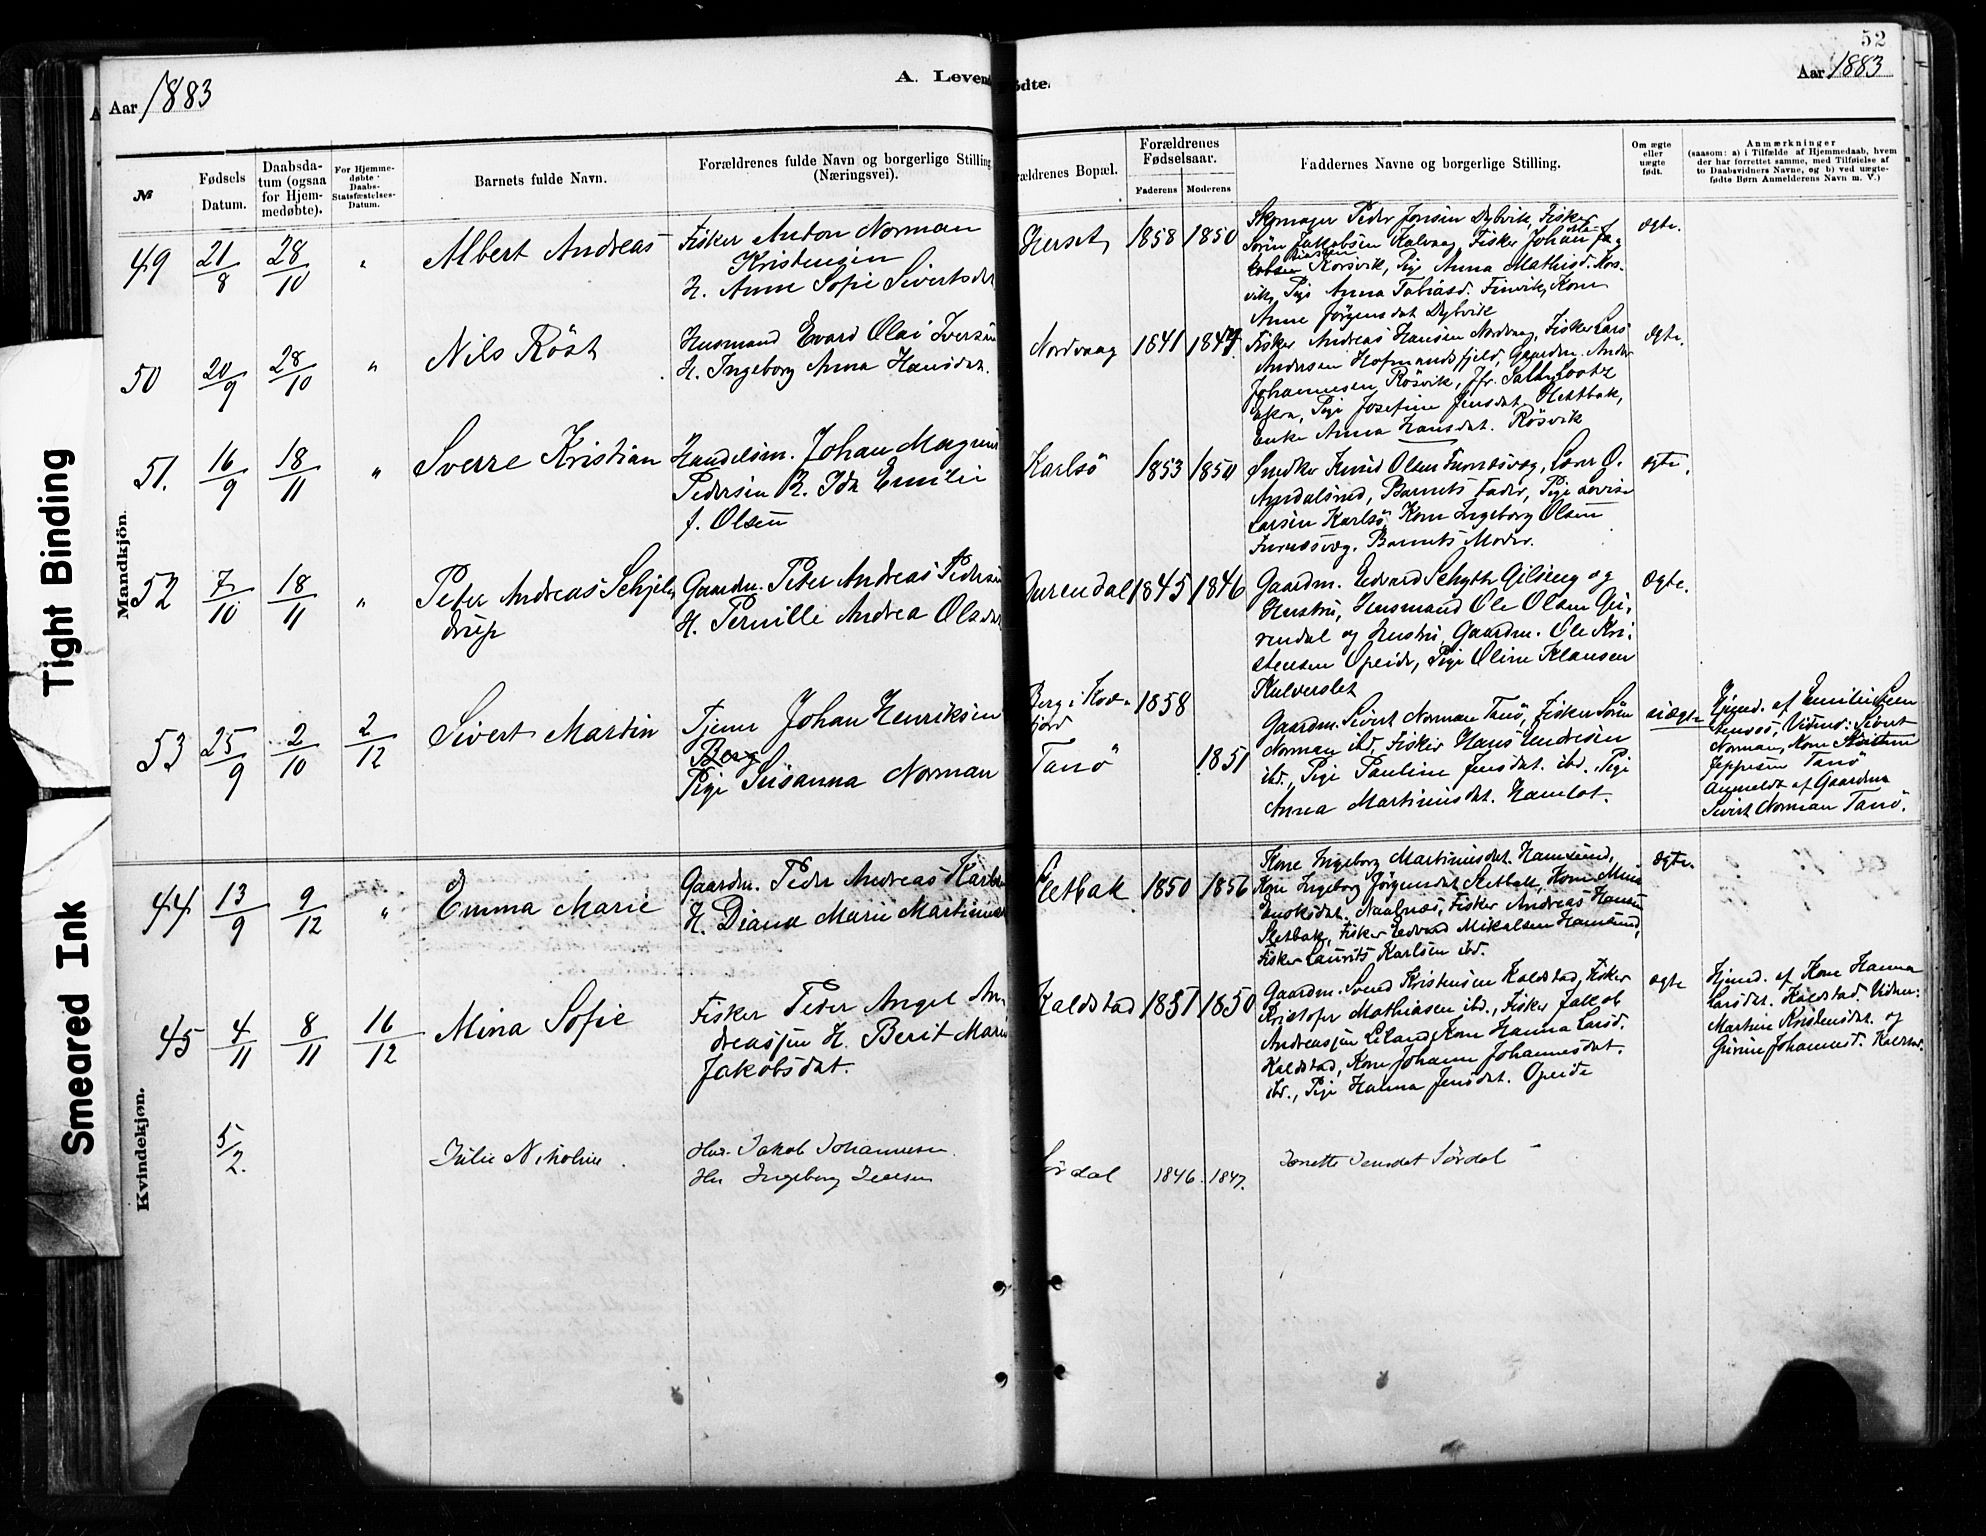 52
Aar 1883
A. Levendefødte.
Aar 1883
№
Fødsels Datum.
Daabsdatum (ogsaa for Hjemmedøbte).
For Hjemmedøbte Daabs-Statsfæstelses-Datum.
Barnets fulde Navn.
Forældrenes fulde Navn og borgerlige Stilling (Næringsvei).
rældrenes Bopæl.
Forældrenes Fødselsaar.
Faderens
Moderens
Faddernes Navne og borgerlige Stilling.
Om ægte eller uægte født.
Anmærkninger
(saasom: a) i Tilfælde af Hjemmedaab, hvem
der har forrettet samme, med Tilføielse af
to Daabsvidners Navne, og b) ved uægte-
fødte Børn Anmelderens Navn m. V.)
Mandkjön.
49 21/8 28/10 " Albert Andreas
Fisker Anton Norman
Kristensen
H. Anne Sofie Sivertsdat
Hierset 1858 1850
Skomager Peder Jonsen Dybvik, Fisker
Sören Jakobsen Kalvaag, Fisker Johan
Korsvik, Pige Anna Mathisd. Kors-
vik, Pige Anna Tobiasd. Finvik, Kone
Anne Jörgensdat Dybvik
ægte.
50 20/9 28/10 " Nils Röst
Husmand Evard Olai Iversen
H. Ingeborg Anna Hansdat.
Nordvaag 1841 1847
Fisker Andreas Hansen Nordvaag, Fisker Lars
Andersen Hofmandsfjeld, Gaardm. Ander
Johannesen Rösvik, Jfr.
Pige Josefine Jensdat. Hestbak,
Enke Anna Hansdat. Rösvik
ægte.
51. 16/9 18/11 " Sverre Kristian
Handelsm. Johan Magnus
Pedersen H. Ida Emilie
f. Olsen
Karlsö 1853 1850
Snedker Knud Olsen Furnesvæg, Lærer O.
Barnets Fader, Pige Lovise
Larsen Karlsö, Kone Ingeborg Olsen
Furnesvæg. Barnets Moder.
ægte.
52 7/10 18/11 " Peter Andreas Schjel
drup
Gaardm. Peter Andreas Peders
H. Pernille Andrea Olsdat
urendal 1845 1846
Gaardm. Edvard Schytte Gilseng og
Hustru, Husmand Ole Olsen Gu-
rendal og Hustru, Gaardm. Ole Kri-
stensen Opeide, Pige Oline Klausen
Kulverslet
Ægte.
53 25/9 2/10 2/12 Sivert Martin
Tjener Johan Henriksen
Berg
Pige Susanna Norman
Berg i Kvæ-
fjord 1858
Tanö 1851
Gaardm. Sivert Norman Tanö, Fisker Sören
Norman ibd, Fisker Hans Endresen
ibd., Pige Pauline Jensdat. ibd. Pige
Anna Martinusdat. Hamlot.
uægte
Hjemd. af Emilie
Vidnd: Sivert
Norman, Kone
Jeppesen Tanö
Anmeldt af Gaardm
Sivert Norman Tanö.
Kvindekjøn.
44 13/9 9/12 " Emma Marie
Gaardm. Peder Andreas Karls
H. Diana Marie Martinusd
Sletbak 1850 1856
Kone Ingeborg Martinusdat. Hamsund,
Kone Ingeborg Jörgensdat Sletbak, Kone
Enoksdat. Naalnæs, Fisker Andreas Hansen
Sletbak, Fisker Edvard Mikalsen Hamsund,
Fisker Laurits Karlsen ibd.
ægte.
45 4/11 8/11 16/12 Mina Sofie
Fisker Peder Angel An-
dreassen H. Berit Marie
Jakobsdat.
Kaldstad 1851 1850
Gaardm. Svend Kristensen Kaldstad, Fisker
Kristofer Mathiasen ibd., Fisker Jakob
Andreassen Leland, Kone Hanna Larsd.
Kaldstad, Kone Johann Johannesdat.
ibd., Pige Hanna Jensdat. Opeide
ægte
Hjemd. af Kone Hanna
Larsdat. Kaldstad. Vidner:
Martine Kristensdat. og
Gurine Johannesd. Kaldstad.
5/2. Julie Nikoline.
Hus. Jakob Johannesen.
Hu Ingeborg Jensen
Sördal 1846. 1847.
Jonette Jensdat Sördal
Tight Binding
Smeared Ink